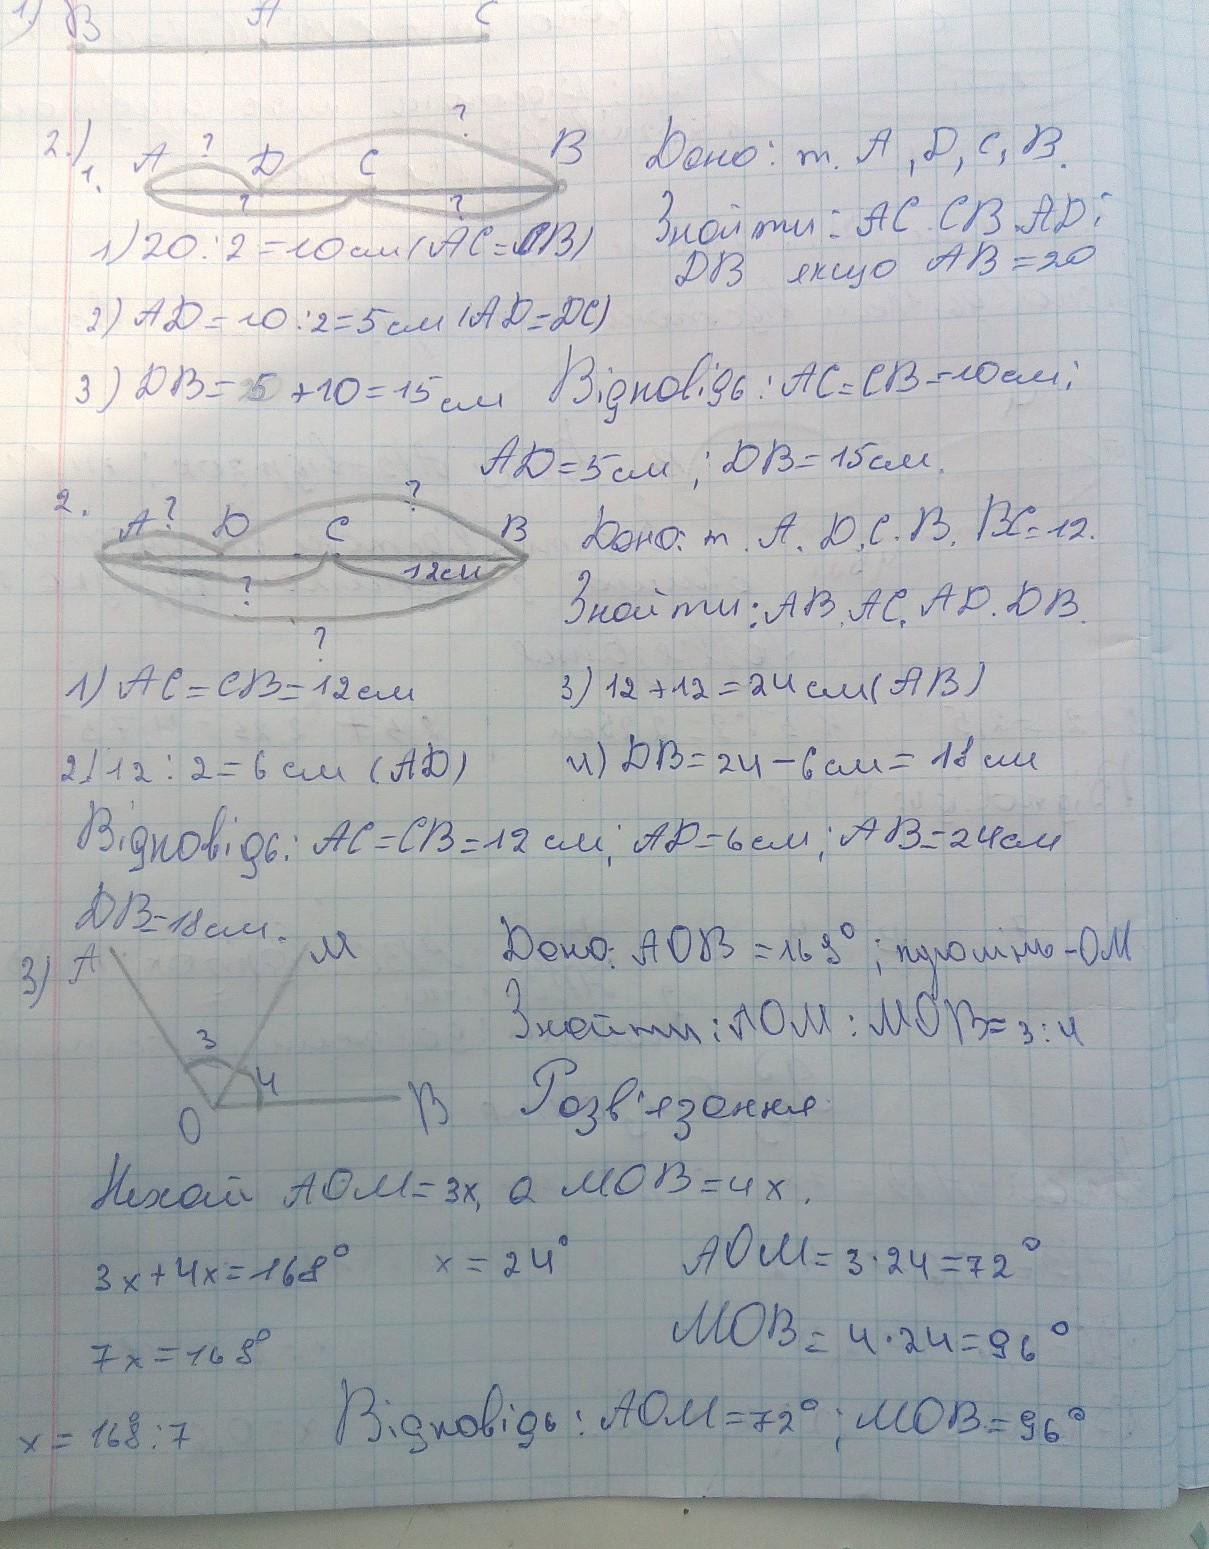 1) B A C
2.) 1. A ? D C ? B
? ?
Дано: т. A, D, C, B.
Знайти: AC. CB. AD;
DB якщо AB=20
1) 20:2=10см (AC=CB)
2) AD=10:2=5см (AD=DC)
3) DB=5+10=15см Відповідь: AC=CB=10см;
AD=5см; DB=15см.
2. A ? D C ? B
12см
?
?
Дано: т. A. D. C. B. BC=12.
Знайти: AB. AC. AD. DB.
1) AC=CB=12см 3) 12+12=24см(AB)
2) 12:2=6см (AD) 4) DB=24-6см=18см
Відповідь: AC=CB=12см; AD=6см; AB=24см
DB=18см.
3) A M
3 4
O B
Дано: AOB=168°; промінь-OM
Знайти: AOM:MOB=3:4
Розв'язання
Нехай AOM=3x, а MOB=4x.
3x+4x=168° x=24° AOM=3·24=72°
7x=168° MOB=4·24=96°
x=168:7 Відповідь: AOM=72°; MOB=96°